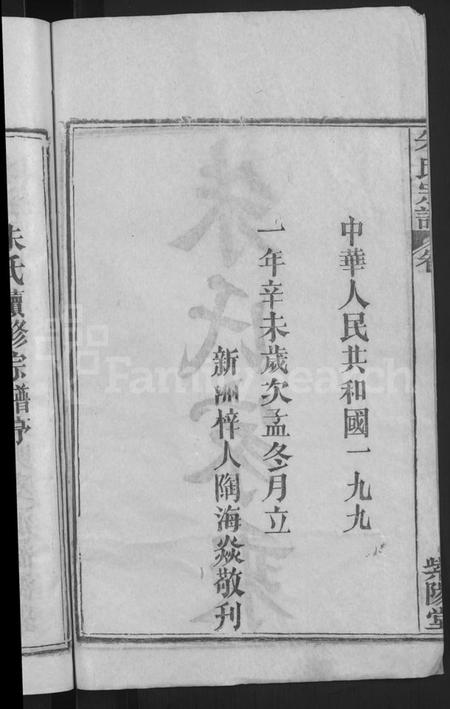 中華人民共和國一九九
一年辛未歲次孟冬月立
新洲梓人陶海焱敬刊
朱氏宗譜
紫陽堂
朱氏續修宗譜序
FamilySearch